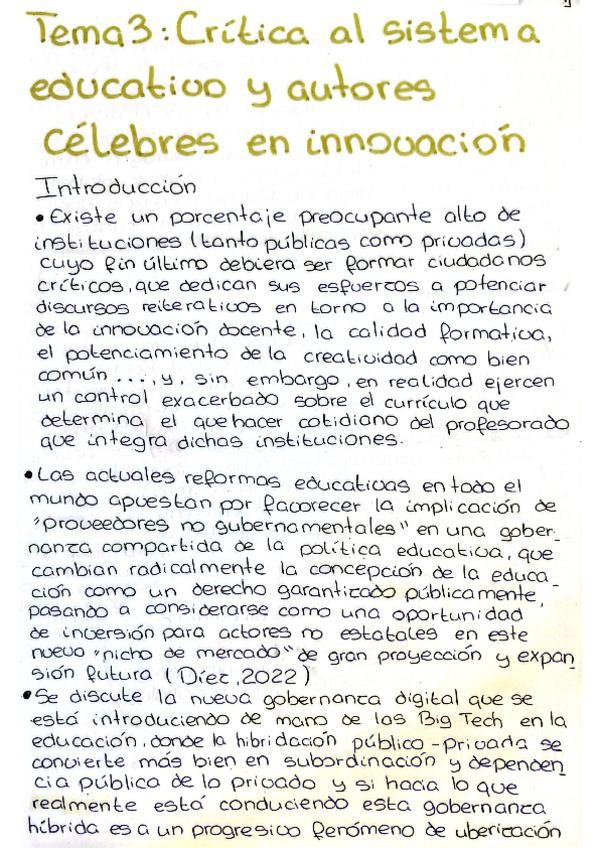 Tema 3: Crítica al sistema
educativo y autores
célebres en innovación
Introducción
• Existe un porcentaje preocupante alto de
instituciones (tanto públicas como privadas)
cuyo fin último debiera ser formar ciudadanos
críticos, que dedican sus esfuerzos a potenciar
discursos reiterativos en torno a la importancia
de la innovación docente, la calidad formativa,
el potenciamiento de la creatividad como bien
común ..., y, sin embargo, en realidad ejercen
un control exacerbado sobre el currículo que
determina el quehacer cotidiano del profesorado
que integra dichas instituciones.
• Las actuales reformas educativas en todo el
mundo apuestan por favorecer la implicación de
"proveedores no gubernamentales" en una gober-
nanza compartida de la política educativa, que
cambian radicalmente la concepción de la educa-
ción como un derecho garantizado públicamente,
pasando a considerarse como una oportunidad
de inversión para actores no estatales en este
nuevo "nicho de mercado" de gran proyección y expan
sión futura (Díez, 2022)
• Se discute la nueva gobernanza digital que se
está introduciendo de mano de las Big Tech en la
educación, donde la hibridación público-privada se
convierte más bien en subordinación y dependen
cia pública de lo privado y si hacia lo que
realmente está conduciendo esta gobernanza
híbrida es a un progresivo fenómeno de uberización